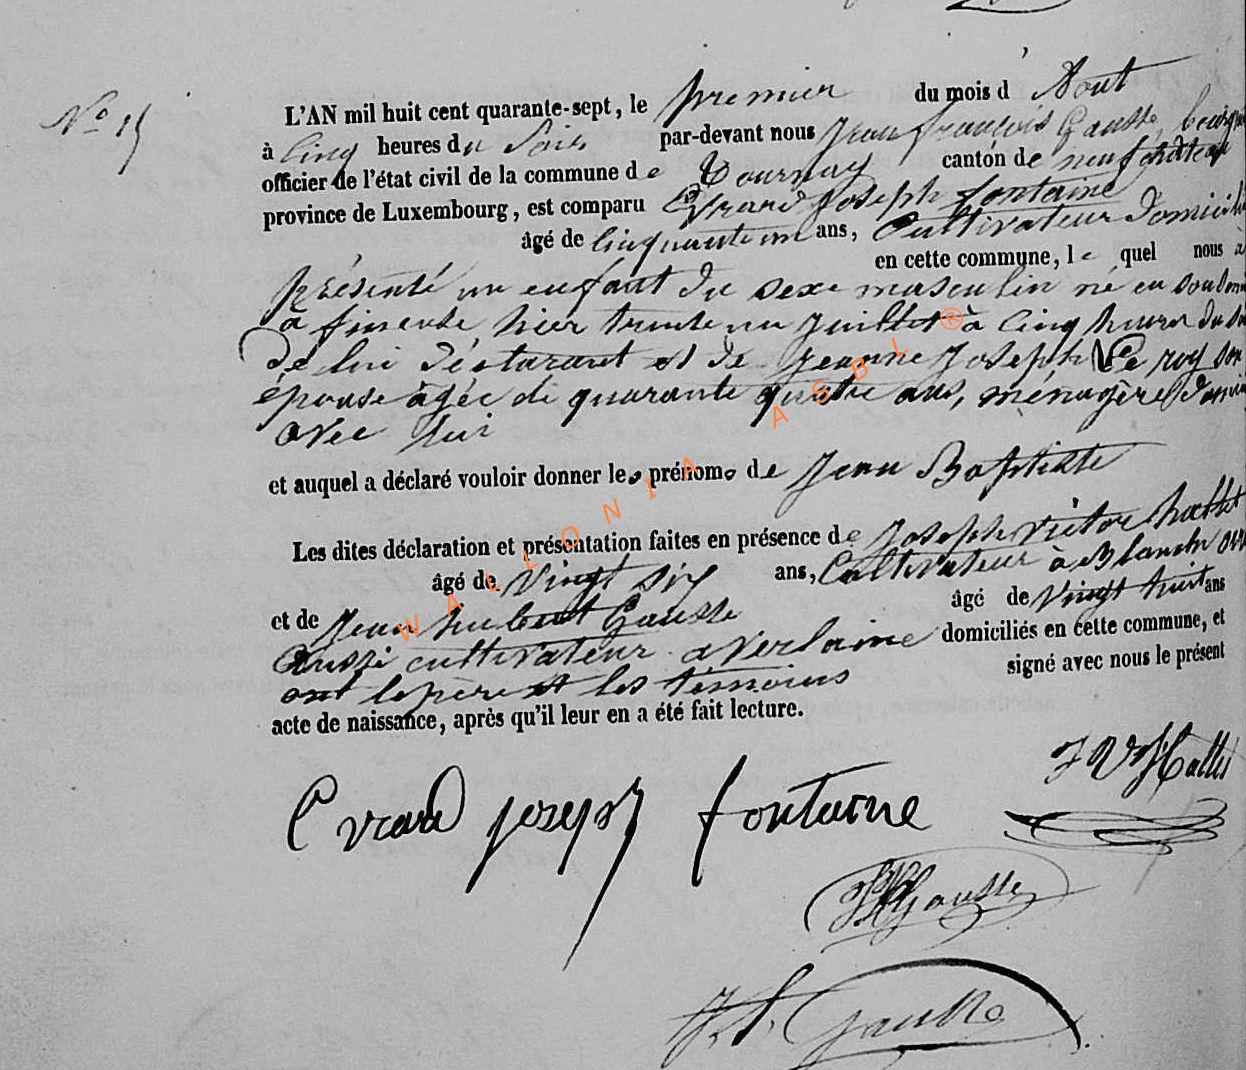 N.° 15
L'AN mil huit cent quarante-sept, le premier du mois d'Aout
à Cinq heures du Soir par-devant nous Jean françois Gausse,
officier de l'état civil de la commune de Tournay cantón de neufchâteau
province de Luxembourg, est comparu Evrard Joseph fontaine
âgé de Cinquante un ans, Cultivateur
en cette commune, le quel nous à
présenté un enfant du sexe masculin né en
à hier trente un Juillet à Cinq heures du
de lui déclarant et de Jeanne Joseph Le roy son
épouse âgée de quarante quatre ans, ménagère
avec lui
et auquel a déclaré vouloir donner les prénoms de Jean Baptiste
Les dites déclaration et présentation faites en présence de Joseph Victor hallet
âgé de Vingt six ans, Cultivateur à Blanche
et de Jean hubert Gausse âgé de Vingt huit ans
aussi cultivateur a Verlaine domiciliés en cette commune, et
ont le père et les témoins signé avec nous le présent
acte de naissance, après qu'il leur en a été fait lecture.
J V Hallet
Evrard joseph fontaine
Gausse
J. f. Gausse
WALLONIA ASBL ®